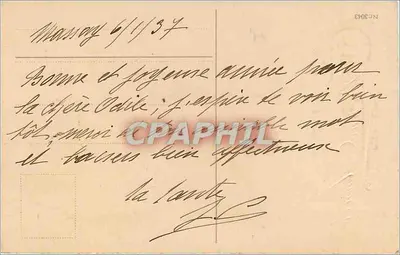 Massay 6/1/37
Bonne et joyeuse année pour
la chère Odile, j'espère te voir bien
tôt, mot
et baisers bien affectueux
la tante
CPAPHIL